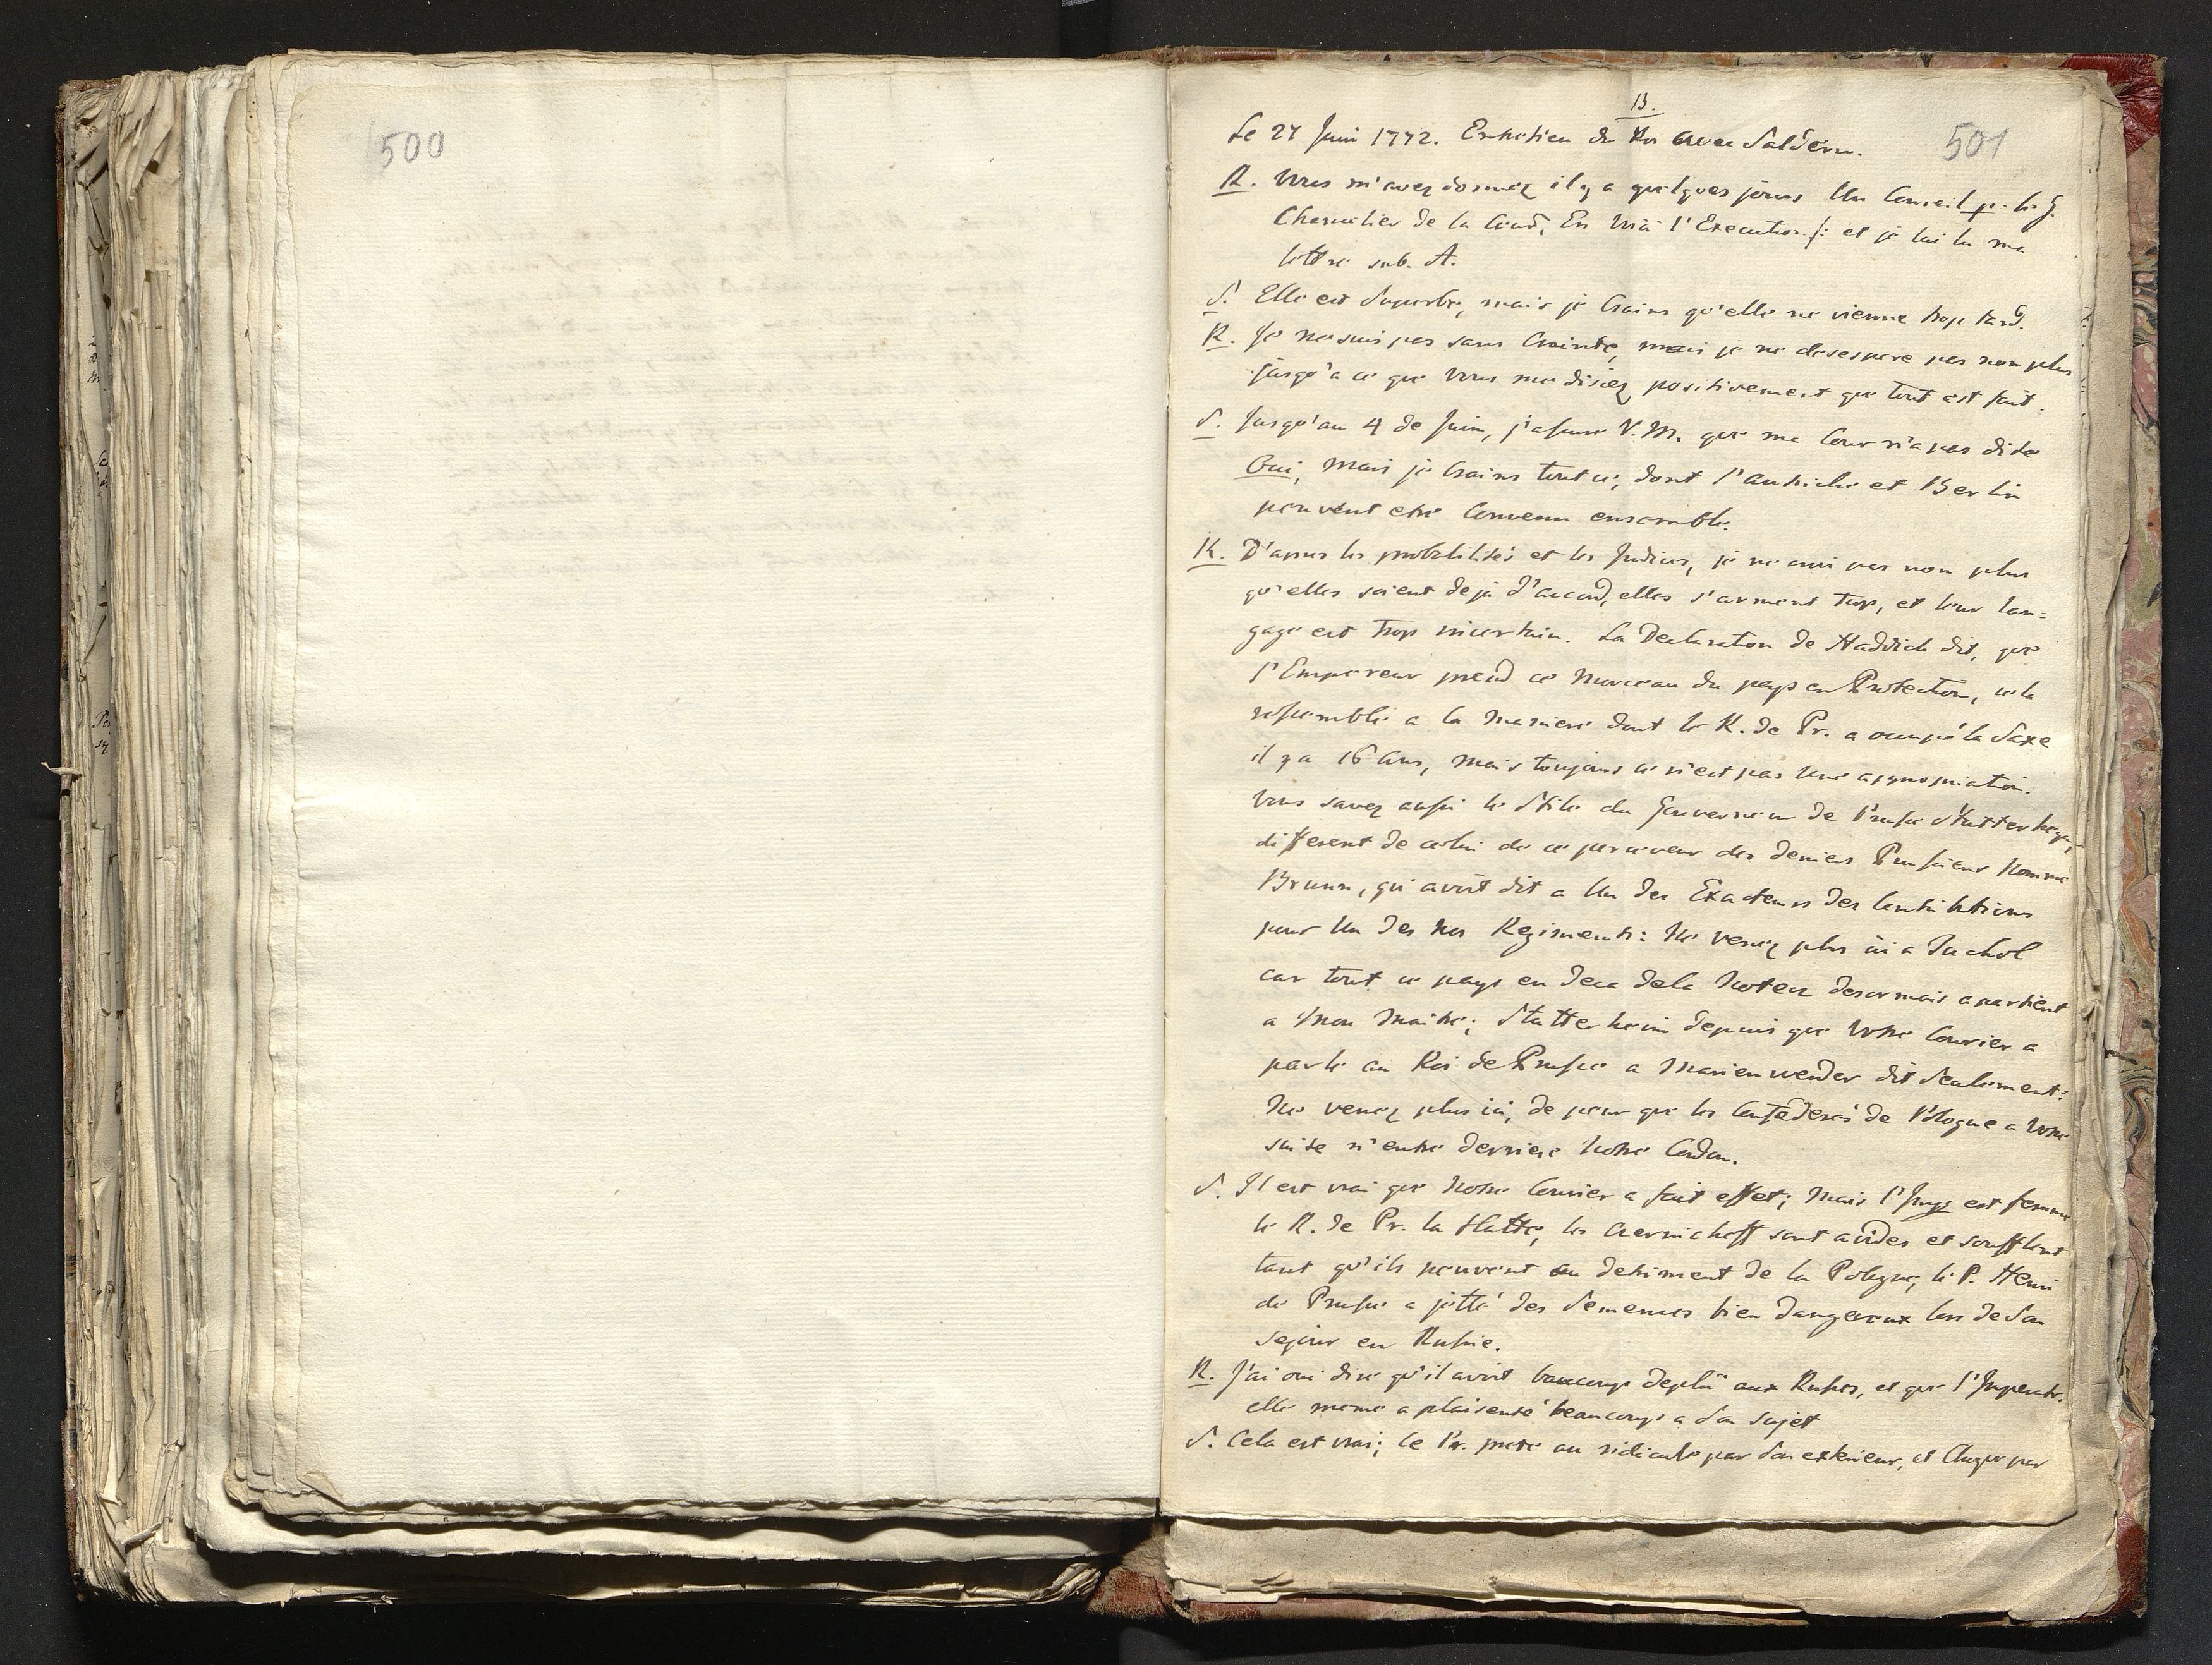 500
B.
501
Le 27 Juin 1772. Entretien du Roi avec Saldern.
R. Vous m'avez donnez il y a quelques jours Un Conseil p. le g.
Chancelier de la Cour, En Voici l'Execution /: et je lui lu ma
lettre sub. A.
S. Elle est Superbe, mais je Crains qu'elle ne vienne trop tard.
R. Je ne suis pas sans Crainte, mais je ne desespere pas non plus
jusqu'a ce que Vous me disiez positivement que tout est fait.
S. Jusqu'au 4 de Juin, j'assure V.M. que ma Cour n'a pas dite
Oui, mais je Crains tout ce, dont l'autriche et Berlin
peuvent etre Convenu ensemble.
R. D'apres les probabilités et les Indices, je ne croi pas non plus
qu'elles soient deja d'accord, elles s'arment trop, et leur lan=
gage est trop incertain. La Declaration de Haddick dit, que
l'Empereur prend ce Morceau du pays en Protection, cela
ressemble a la Maniere dont le R. de Pr. a occupé la Saxe
il y a 16 Ans, Mais toujours ce n'est pas Une appropriation.
Vous savez aussi le Stile du Gouverneur de Prusse Stutterheym,
different de celui de ce perceveur des deniers Prussiens Nommé
Brunn, qui avoit dit a Un des Exacteurs des Contributions
pour Un des nos Regiments: Ne venez plus ici a Tuchol
car tout ce pays en deca de la Notez desormais apartient
a Mon Maitre; Stutterheim depuis que Votre Courier a
parlé au Roi de Prusse a Marienwerder dit Seulement:
Ne venez plus ici, de peur que les Confederés de Pologne a Votre
suite n'entre derriere Notre Cordon.
S. Il est vrai que Notre Courier a fait effet; Mais l'Imp: est femme
le R. de Pr. la flatte, les Czernicheff sont avides et soufflent
tant qu'ils peuvent au detriment de la Pologne, le P. Henri
de Prusse a jetté des Semences bien dangereux lors de Son
Sejour en Russie.
R. J'ai oui dire qu'il avoit beaucoup deplû aux Russes, et que l'Imperatr.
elle meme a plaisenté beaucoup a Son Sujet
S. Cela est vrai; le Pr. prete au ridicule par Son exterieur, et Choque par